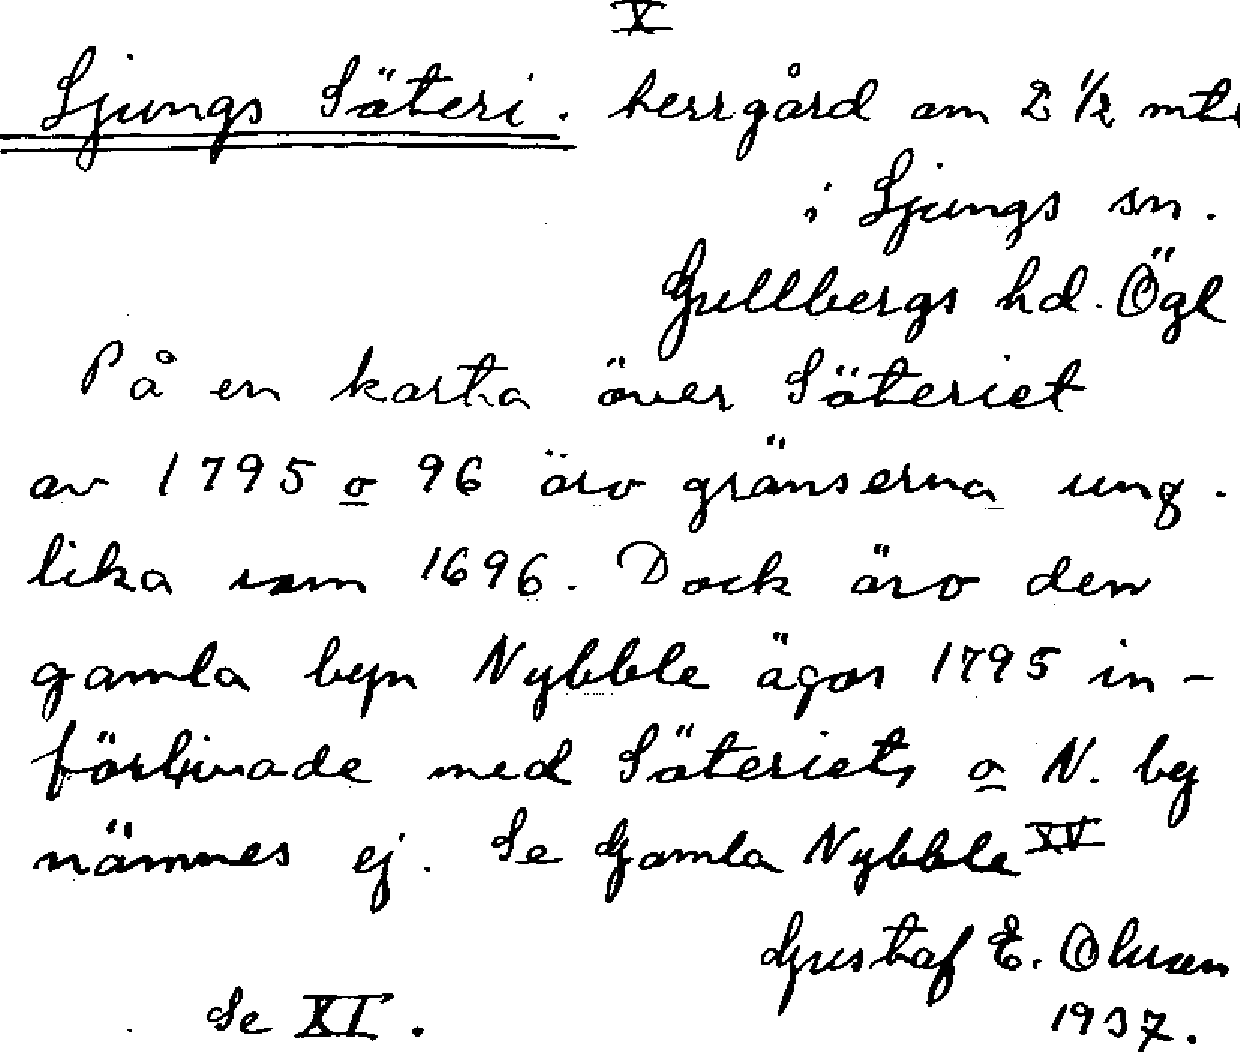 V
Ljungs Säteri. herrgård om 2 1/2 mtl
i Ljungs sn.
Gullbergs hd. Ögl
På en karta över Säteriet
av 1795 o 96 äro gränserna ung.
lika som 1696. Dock äro den
gamla byn Nybble ägor 1795 in-
förlivade med Säteriets o N. by
nämnes ej. Se Gamla Nybble XV
Gustaf E. Olsson
1937.
Se XI.